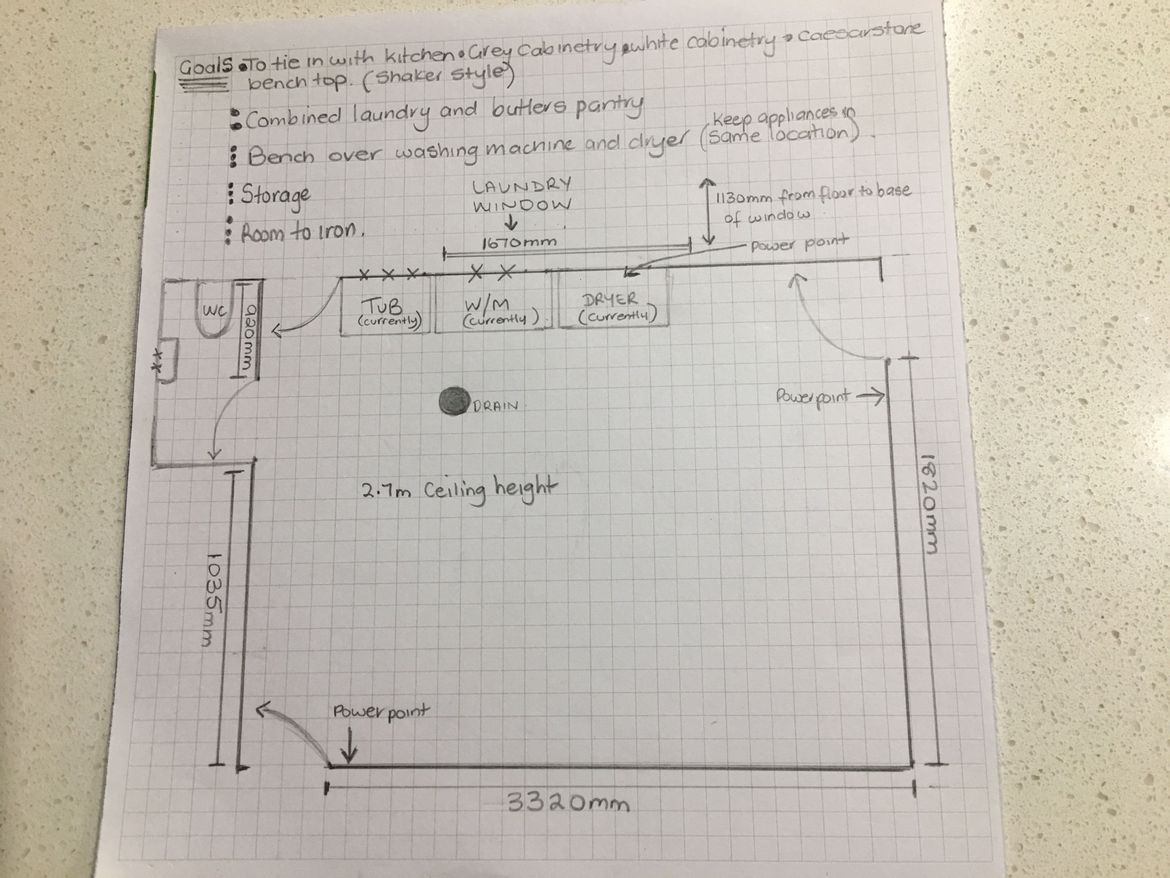 Goals • To tie in with kitchen • Grey Cabinetry • white cabinetry • caesarstone
bench top. (Shaker style)
• Combined laundry and butlers pantry
• Bench over washing machine and dryer (Keep appliances in
same location).
• Storage
• Room to iron.
LAUNDRY
WINDOW
1670mm
1130mm from floor to base
of window
Power point
WC
920mm
TUB
(currently)
W/M
(currently)
DRYER
(currently)
DRAIN
Powerpoint
2.7m Ceiling height
1820mm
1035mm
Powerpoint
3320mm